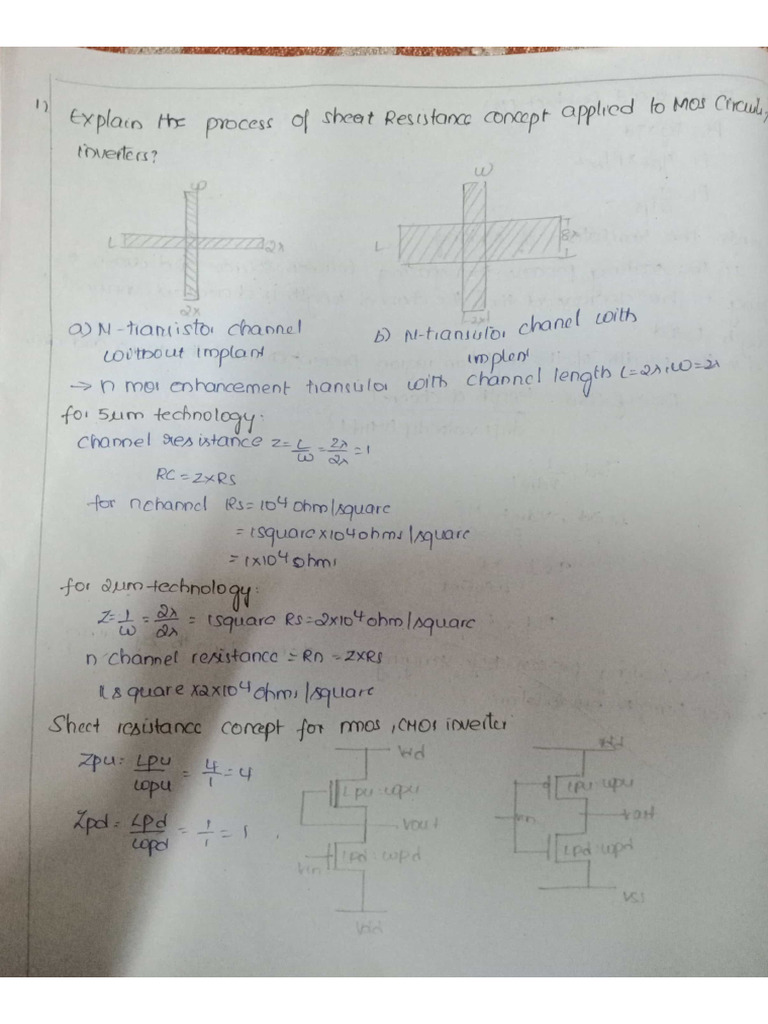 1) Explain the process of sheet Resistance concept applied to MOS Circuit,
inverters?
L
2λ
2λ
W
L
8λ
2λ
a) N-transistor channel
without implant
b) N-transistor chanel with
implent
→ n mos enhancement transistor with channel length L=2λ, W=2λ
for 5µm technology:
channel resistance Z=L/W=2λ/2λ=1
RC=Z×RS
for n channel Rs=10⁴ ohm/square
=1square×10⁴ohms/square
=1×10⁴ohms
for 2µm-technology:
Z=1/ω=2λ/2λ=1square Rs=2×10⁴ohm/square
n channel resistance=Rn=Z×RS
1square×2×10⁴ohms/square
Sheet resistance concept for nmos, CMOS inverter
Zpu=Lpu/ωpu=4/1=4
Zpd=Lpd/ωpd=1/1=1
Vdd
Lpu:ωpu
Vout
Lpd:ωpd
Vin
Vdd
Lpu:ωpu
Vout
Lpd:ωpd
VSS